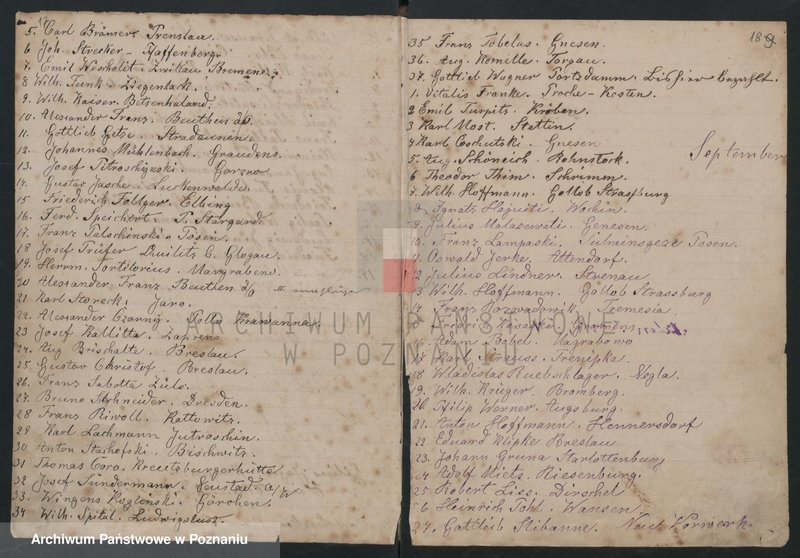 5. Carl Brämer. Prenslau.
6 Joh. Strecker - Pfaffenberg.
7. Emil Wischolit. Zwikau Bremene
8 Wilh. Funk - Ziegenlack.
9. Wilh. Kaiser. Betsenhaland.
10. Alexander Franz. Beuthen
11. Gottlieb Getze. Stradaunen.
12. Johannes Mühlenbach. Graudens.
13. Josef Pitroschizeski. Gorzno
14. Gustav Jasche. Luckenwalde.
15. Friederich Föllger. Elbing
16. Ferd. Speichert. P. Stargard
17. Franz Palschinski. Posen.
18 Josef Trüfer Quilitz b. Glogau.
19. Herrm. Tortilorius. Margrabend.
20 Alexander Franz. Beuthen
21. Karl Storeck. Jaro.
22. Alexander Czornig. Polla
23 Josef Kallitta. Zahrens
24. Aug Brischalte. Breslau.
25. Gustav Christof. Breslau.
26. Franz Sabotta Lüls.
27. Bruno Schneider. Dresden.
28. Franz Riwoll. Kattowitz.
29. Karl Lachmann Jutroschin.
30 Anton Stachofski. Bischwitz.
31 Thomas Coro. Kreutzburgerhütte
32 Josef Sundermann. Neustad a/W
33. Wingens Kozienski. Görchen.
34 Wilh. Spital. Ludwigslust.
189
35 Franz Tobolas. Gnesen.
36. Aug. Homille. Torgau.
37. Gottlieb Wagner Potzdamm. Bis hier bezahlt.
1. Vitalis Franke. Proche - Kosten.
2 Emil Turpitz. Kröben.
3 Karl Most. Stettin.
4 Karl Coschutski. Gnesen
September
5. Aug. Schöneich. Rohnstock.
6 Theodor Thim. Schrimm.
7. Wilh. Hoffmann. Gollob Strassburg
8 Ignatz Hajuiti. Wochin.
9. Julius Malazewati. Genesen.
10. Franz Lampaski. Posen.
11. Oswald Jerke. Attendorf.
12 Julius Lindner. Strenau.
13 Wilh. Hoffmann. Gollob Strassburg
14 Franz Tremesia.
16 Adam Babel. Nagrabowo
17 Karl Strauss. Trenipka.
18 Wladislas Ruebschlager. Negla.
19. Wilh. Krüger. Bromberg.
20. Pfilip Werner. Augsburg.
21. Anton Hoffmann. Hennersdorf
22 Eduard Klipke Breslau
23. Johann Gruna Starlottenburg
24 Adolf Miets. Riesenburg.
25 Robert Liss. Dirschel
26 Heinrich Pohl. Wansen.
27. Gottlieb Slibanne. Vorwerk.
ARCHIWUM PAŃSTWOWE
W POZNANIU
Archiwum Państwowe w Poznaniu